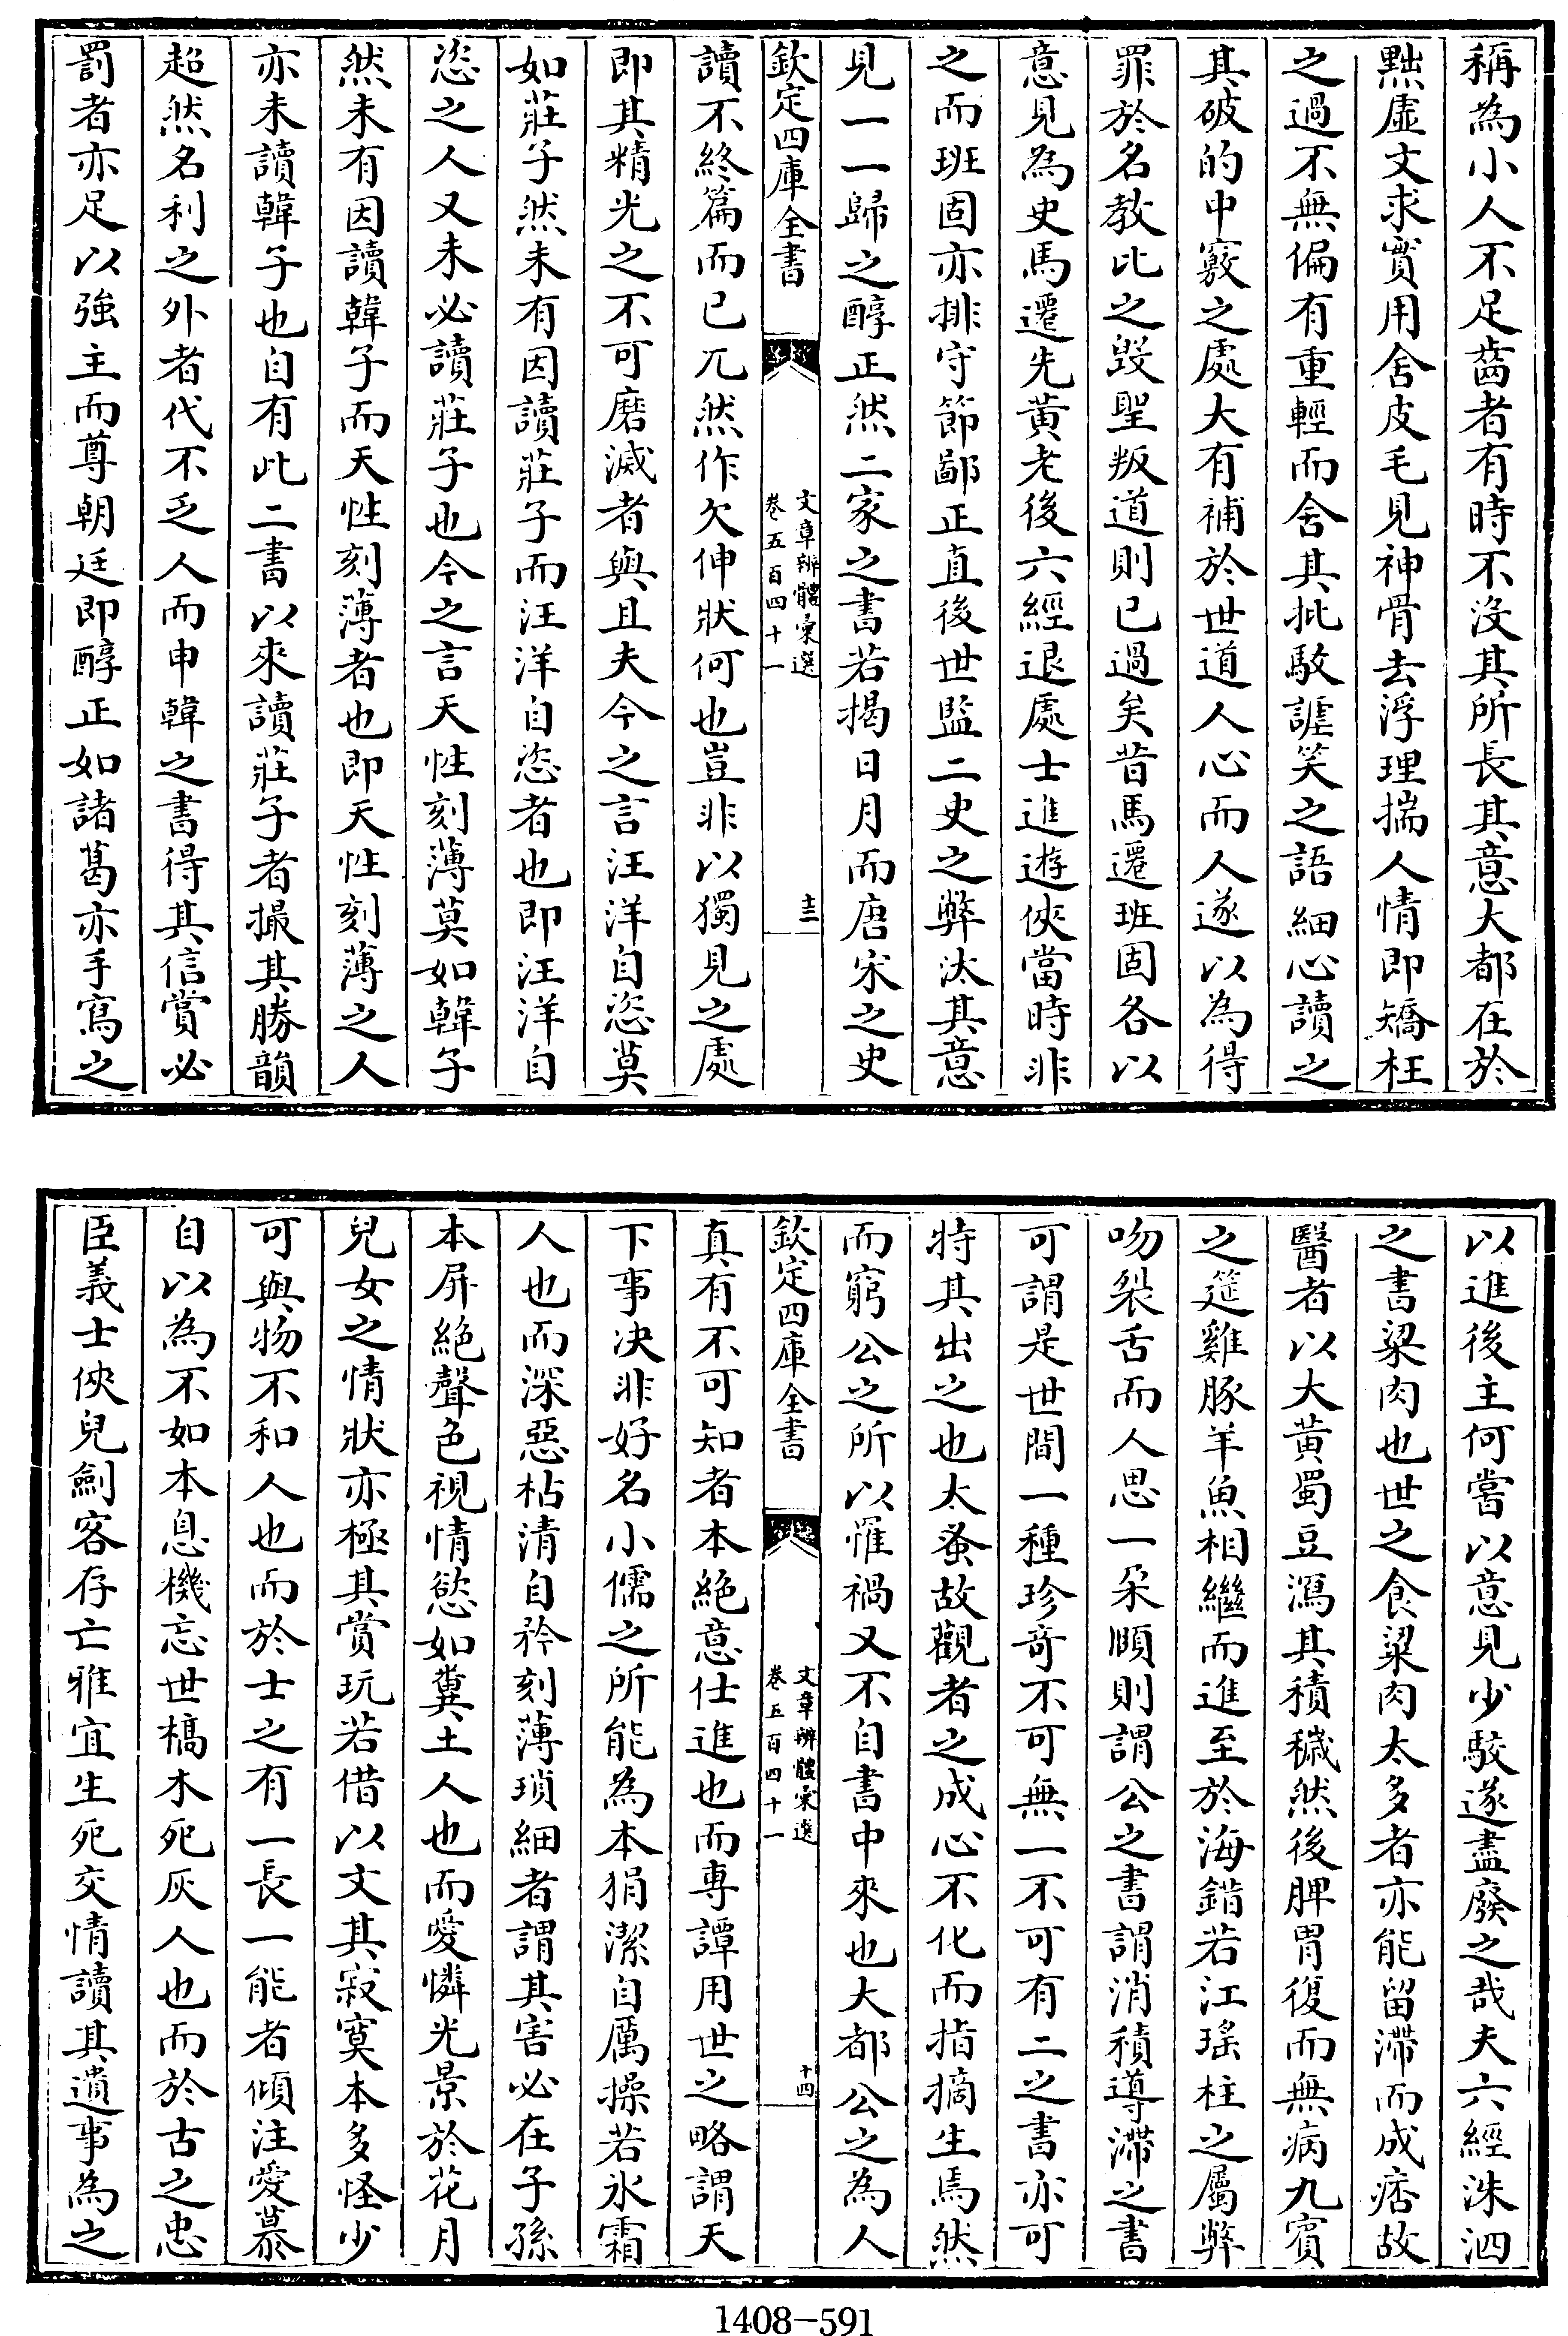 稱為小人不足齒者有時不沒其所長其意大都在於
黜虛文求實用舍皮毛見神骨去浮理揣人情即矯枉
之過不無偏有重輕而舍其批駮謔笑之語細心讀之
其破的中竅之處大有補於世道人心而人遂以為得
罪於名教比之毀聖叛道則已過矣昔馬遷班固各以
意見為史馬遷先黃老後六經退處士進遊俠當時非
之而班固亦排守節鄙正直後世監二史之弊汰其意
見一一歸之醇正然二家之書若揭日月而唐宋之史
欽定四庫全書
文章辨體彙選
卷五百四十一
十三
讀不終篇而已兀然作欠伸狀何也豈非以獨見之處
即其精光之不可磨滅者與且夫今之言汪洋自恣莫
如莊子然未有因讀莊子而汪洋自恣者也即汪洋自
恣之人又未必讀莊子也今之言天性刻薄莫如韓子
然未有因讀韓子而天性刻薄者也即天性刻薄之人
亦未讀韓子也自有此二書以來讀莊子者撮其勝韻
超然名利之外者代不乏人而申韓之書得其信賞必
罰者亦足以強主而尊朝廷即醇正如諸葛亦手寫之
以進後主何嘗以意見少駮遂盡廢之哉夫六經洙泗
之書粱肉也世之食粱肉太多者亦能留滯而成痞故
醫者以大黃蜀豆瀉其積穢然後脾胃復而無病九賓
之筵雞豚羊魚相繼而進至於海錯若江瑤柱之屬弊
吻裂舌而人思一朵頤則謂公之書謂消積導滯之書
可謂是世間一種珍奇不可無一不可有二之書亦可
特其出之也太蚤故觀者之成心不化而指摘生焉然
而窮公之所以罹禍又不自書中來也大都公之為人
欽定四庫全書
文章辨體彙選
卷五百四十一
十四
真有不可知者本絕意仕進也而專譚用世之略謂天
下事決非好名小儒之所能為本狷潔自厲操若氷霜
人也而深惡枯清自矜刻薄瑣細者謂其害必在子孫
本屏絕聲色視情慾如糞土人也而愛憐光景於花月
兒女之情狀亦極其賞玩若借以文其寂寞本多怪少
可與物不和人也而於士之有一長一能者傾注愛慕
自以為不如本息機忘世槁木死灰人也而於古之忠
臣義士俠兒劍客存亡雅宜生死交情讀其遺事為之
1408-591